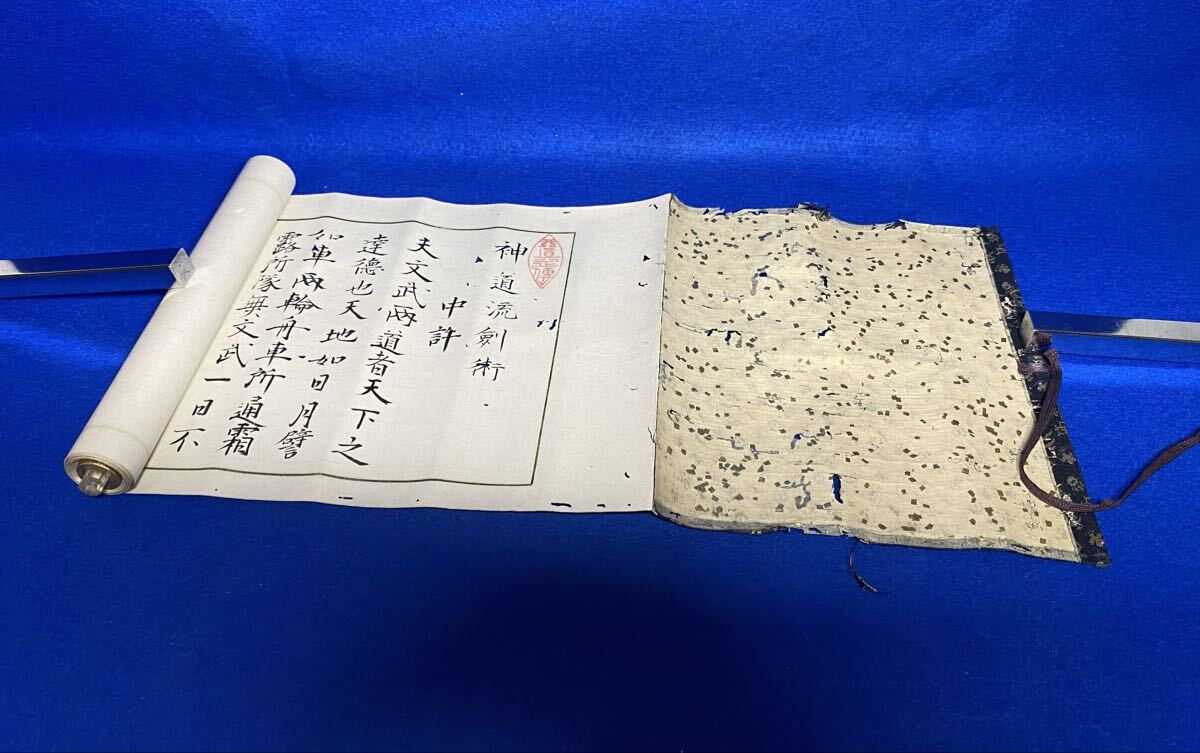 神道流劍術
中許
夫文武兩道者天下之
達德也天地如日月譬
如車兩輪舟車所通霜
露所隊無文武一日不